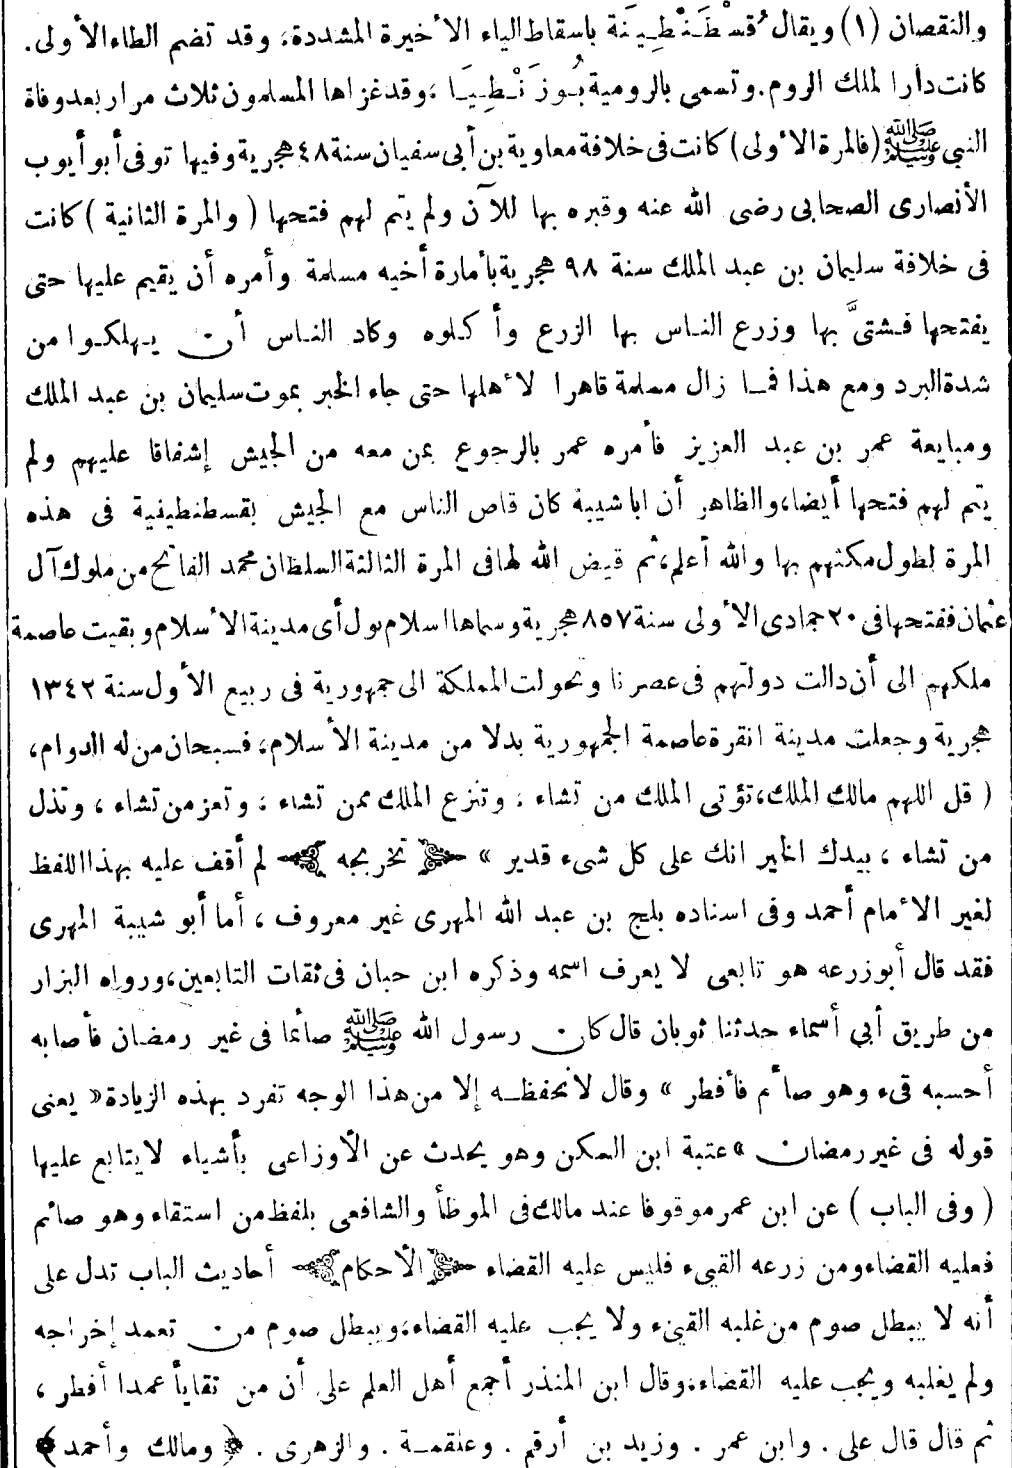 والنقصان (١) ويقال قُسْطَنْطِينَة باسقاط الياء الأخيرة المشددة، وقد تضم الطاء الأولى.
كانت دارا لملك الروم. وتسمى بالرومية بُوزَنْطِيَا ،وقد غزاها المسلمون ثلاث مرار بعد وفاة
النبي ﷺ (فالمرة الأولى) كانت فى خلافة معاوية بن أبى سفيان سنة ٤٨ هجرية وفيها توفى أبو أيوب
الأنصارى الصحابى رضى الله عنه وقبره بها للآن ولم يتم لهم فتحها ( والمرة الثانية ) كانت
فى خلافة سليمان بن عبد الملك سنة ٩٨ هجرية بأمارة أخيه مسلمة وأمره أن يقيم عليها حتى
يفتحها فشتىَّ بها وزرع الناس بها الزرع وأكلوه وكاد الناس أن يهلكوا من
شدة البرد ومع هذا فما زال مسلمة قاهرا لأهلها حتى جاء الخبر بموت سليمان بن عبد الملك
ومبايعة عمر بن عبد العزيز فأمره عمر بالرجوع بمن معه من الجيش إشفاقا عليهم ولم
يتم لهم فتحها أيضا،والظاهر أن اباشيبة كان قاص الناس مع الجيش بقسطنطينية فى هذه
المرة لطول مكثهم بها والله أعلم،ثم قيض الله لها فى المرة الثالثة السلطان محمد الفاتح من ملوك آل
عثمان ففتحها فى ٢٠ جمادى الأولى سنة ٨٥٧ هجرية وسماها اسلام بول أى مدينة الأسلام وبقيت عاصمة
ملكهم الى أن دالت دولتهم فى عصرنا وتحولت المملكة الى جمهورية فى ربيع الأول سنة ١٣٤٢
هجرية وجعلت مدينة انقرة عاصمة الجمهورية بدلا من مدينة الأسلام، فسبحان من له الدوام،
( قل اللهم مالك الملك،تؤتى الملك من تشاء ، وتنزع الملك ممن تشاء ، وتعز من تشاء ، وتذل
من تشاء ، بيدك الخير انك على كل شىء قدير » ﴿ تخريجه ﴾ لم أقف عليه بهذا اللفظ
لغير الأمام أحمد وفى اسناده بلج بن عبد الله المهرى غير معروف ، أما أبو شيبة المهرى
فقد قال أبوزرعه هو تابعى لا يعرف اسمه وذكره ابن حبان فى ثقات التابعين،ورواه البزار
من طريق أبي أسماء حدثنا ثوبان قال كان رسول الله ﷺ صائما فى غير رمضان فأصابه
أحسبه قىء وهو صائم فأفطر » وقال لانحفظه إلا من هذا الوجه تفرد بهذه الزيادة « يعنى
قوله فى غير رمضان » عتبة ابن السكن وهو يحدث عن الأوزاعى بأشياء لايتابع عليها
( وفى الباب ) عن ابن عمر موقوفا عند مالك فى الموطأ والشافعى بلفظ من استقاء وهو صائم
فعليه القضاء ومن زرعه القىء فليس عليه القضاء ﴿ الأحكام ﴾ أحاديث الباب تدل على
أنه لا يبطل صوم من غلبه القىء ولا يجب عليه القضاء،ويبطل صوم من تعمد إخراجه
ولم يغلبه ويجب عليه القضاء،وقال ابن المنذر أجمع أهل العلم على أن من تقايأ عمدا أفطر ،
ثم قال قال على . وابن عمر . وزيد بن أرقم . وعلقمة . والزهرى . ﴿ ومالك وأحمد ﴾